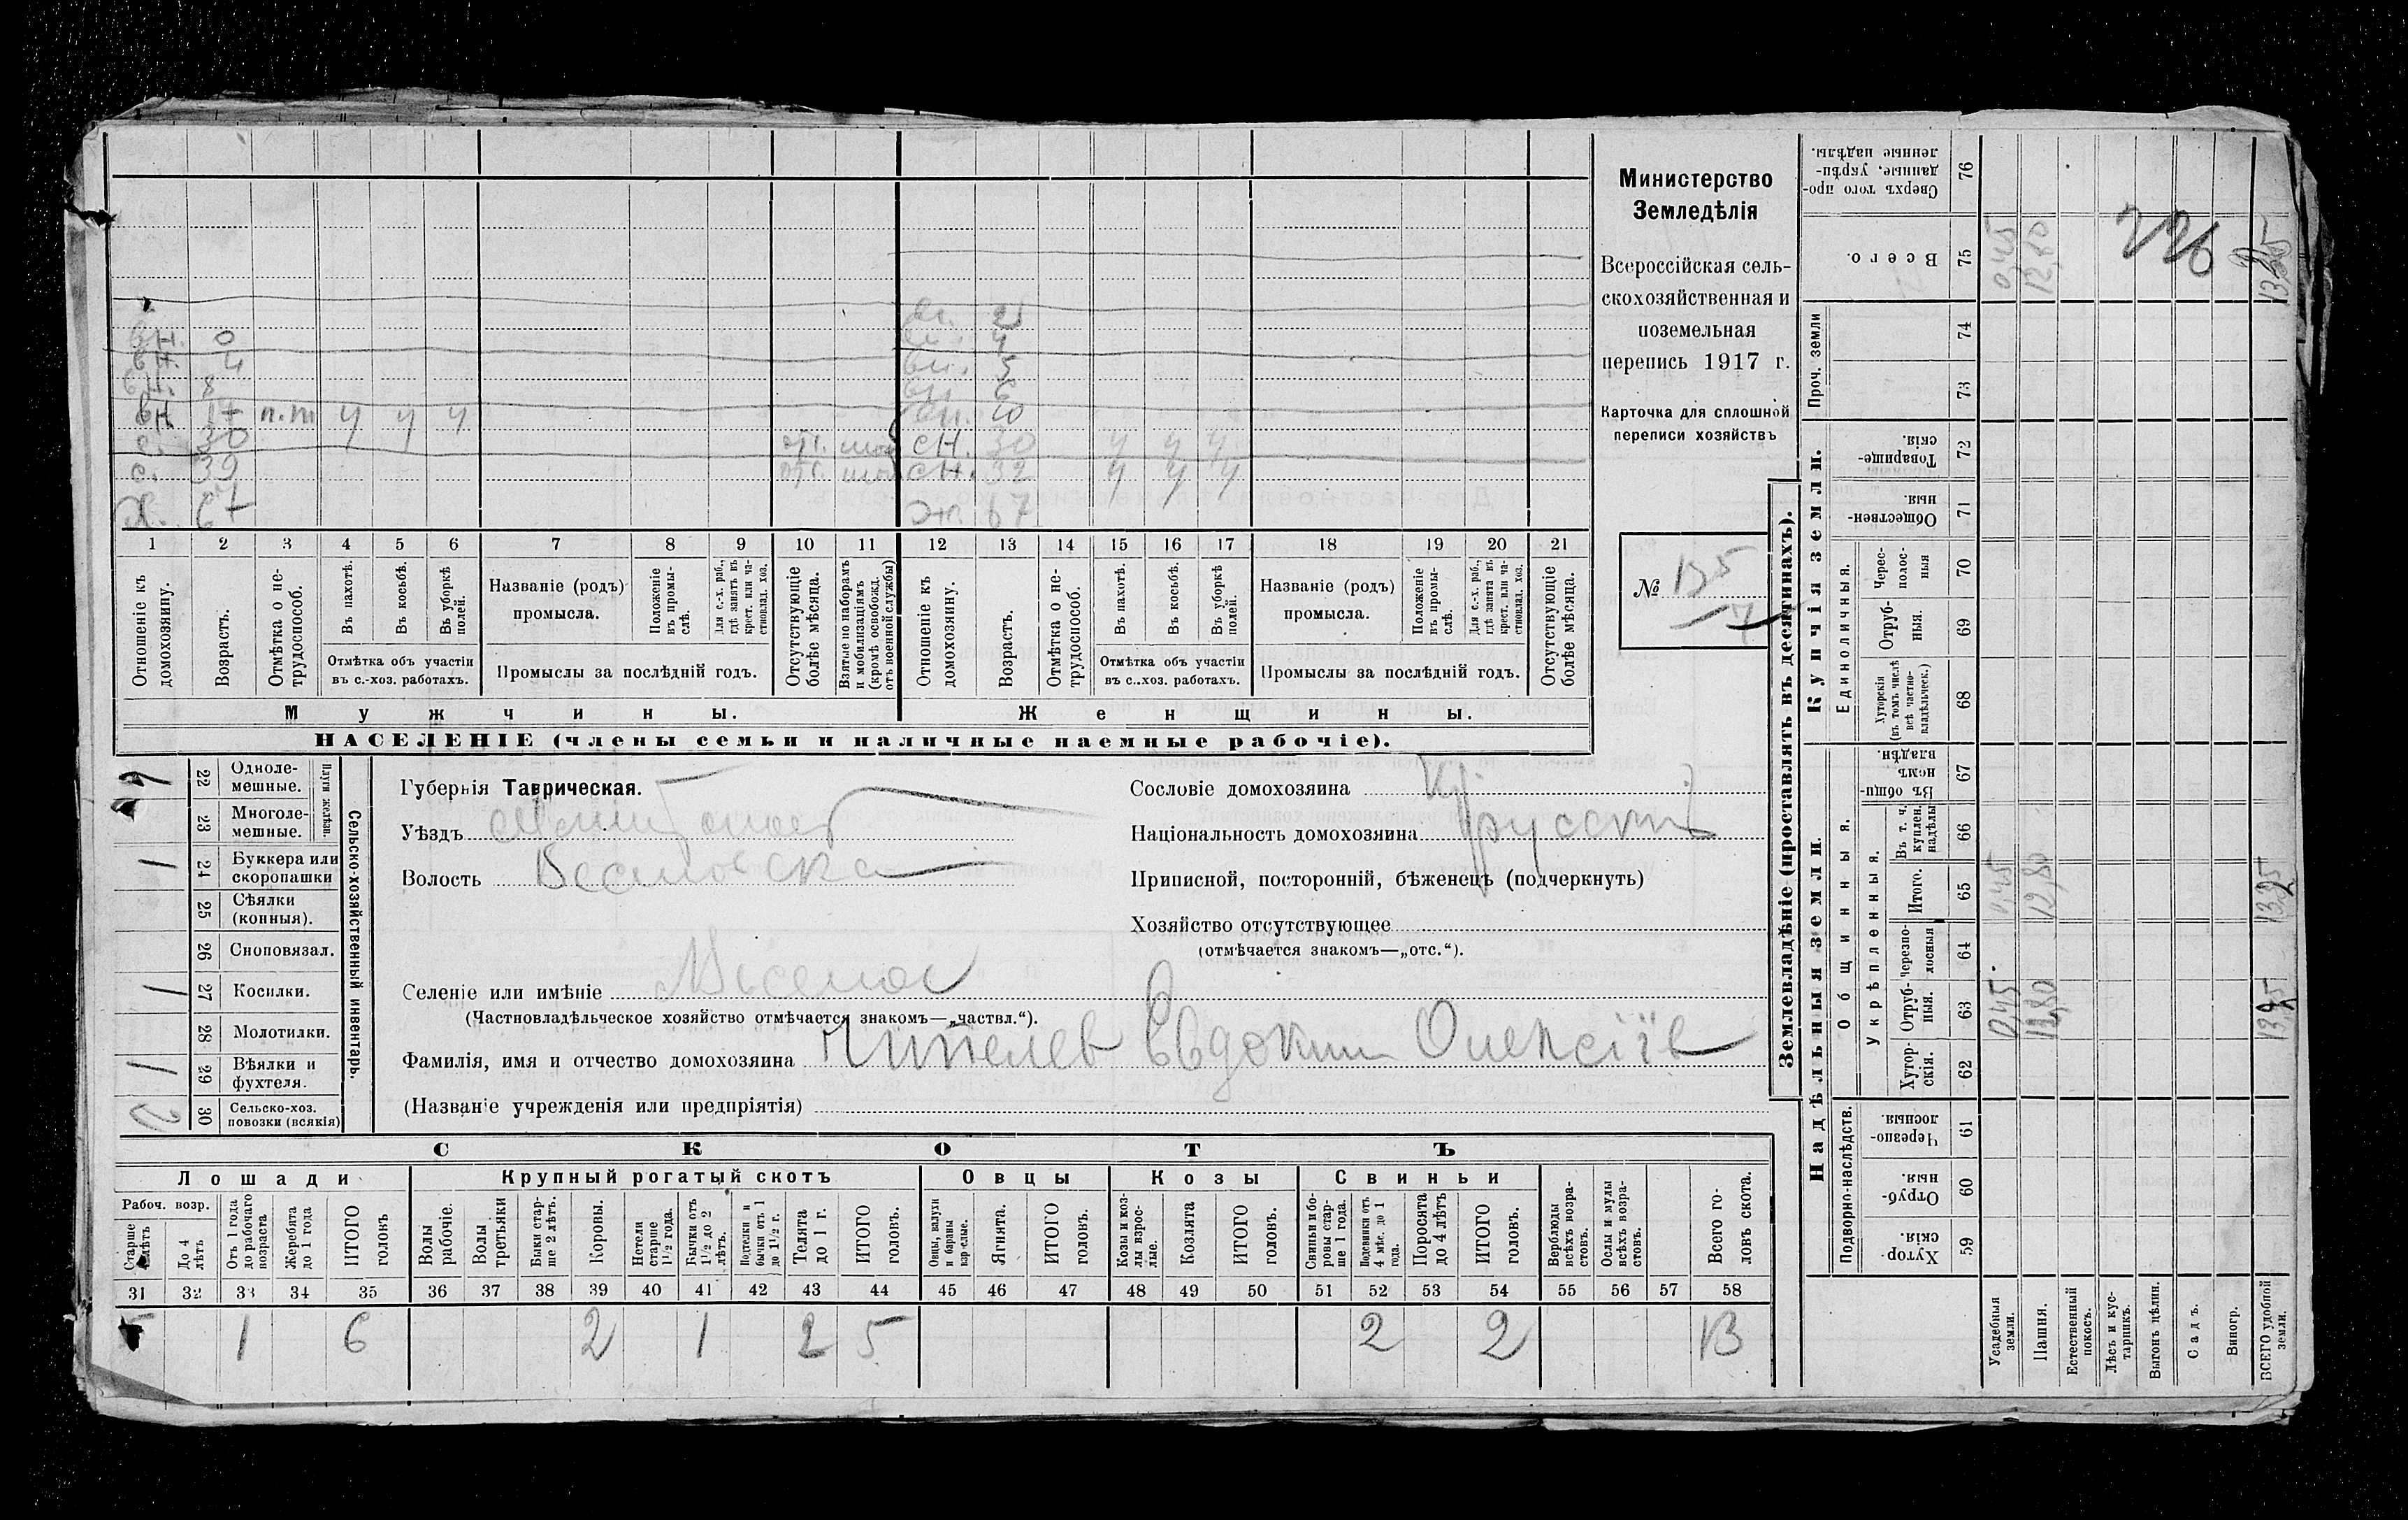 Министерство
Земледѣлія
Всероссійская сель-
скохозяйственная и
поземельная
перепись 1917 г.
Карточка для сплошной
переписи хозяйствъ
№ 135
7
вн. 0
вн. 4
вн. 8
вн 17 п.т ч ч ч
с. 30
с. 39
Х. 67
2
4
5
6
10
сн. 30 ч ч ч
сн. 32 ч ч ч
67
1 2 3 4 5 6 7 8 9 10 11 12 13 14 15 16 17 18 19 20 21
Отношеніе къ домохозяину.
Возрастъ.
Отмѣтка о не-трудоспособ.
Въ пахотѣ.
Въ косьбѣ.
Въ уборкѣ полей.
Отмѣтка объ участіи
въ с.-хоз. работахъ.
Названіе (родъ)
промысла.
Положеніе въ промы-слѣ.
Для с.-х. раб., гдѣ занятъ въ крест. или ча-стновлад. хоз.
Промыслы за послѣдній годъ.
Отсутствующіе болѣе мѣсяца.
Взятые по наборамъ и мобилизаціямъ (кромѣ освобожд. отъ военной службы)
Отношеніе къ домохозяину.
Возрастъ.
Отмѣтка о не-трудоспособ.
Въ пахотѣ.
Въ косьбѣ.
Въ уборкѣ полей.
Отмѣтка объ участіи
въ с.-хоз. работахъ.
Названіе (родъ)
промысла.
Положеніе въ промы-слѣ.
Для с.-х. раб., гдѣ занятъ въ крест. или ча-стновлад. хоз.
Промыслы за послѣдній годъ.
Отсутствующіе болѣе мѣсяца.
Мужчины.
Женщины.
НАСЕЛЕНІЕ (члены семьи и наличные наемные рабочіе).
Сельско-хозяйственный инвентарь.
Плуги желѣзн.
22 Одноле-мешные.
23 Многоле-мешные.
1 24 Буккера или скоропашки
25 Сѣялки (конныя).
26 Сноповязал.
1 27 Косилки.
28 Молотилки.
1 29 Вѣялки и фухтеля.
2 30 Сельско-хоз. повозки (всякія)
Губернія Таврическая.
Уѣздъ
Волость
Селеніе или имѣніе
(Частновладѣльческое хозяйство отмѣчается знакомъ—„частвл.“).
Фамилія, имя и отчество домохозяина Чипелев Евдоким Олексіїв
(Названіе учрежденія или предпріятія)
Сословіе домохозяина
Національность домохозяина русский
Приписной, посторонній, бѣженецъ (подчеркнуть)
Хозяйство отсутствующее
(отмѣчается знакомъ—„отс.“).
СКОТЪ
Лошади
Крупный рогатый скотъ
Овцы
Козы
Свиньи
Рабоч. возр.
Старше 4 лѣтъ
До 4 лѣтъ
Отъ 1 года до рабочаго возраста
Жеребята до 1 года
ИТОГО головъ
Волы рабочіе.
Волы третьяки
Быки стар-ше 2 лѣтъ.
Коровы.
Нетели старше 1½ года.
Бычки отъ 1½ до 2 лѣтъ.
Подтелки и бычки отъ 1 до 1½ г.
Телята до 1 г.
ИТОГО головъ.
Овцы, валухи и бараны взрослые.
Ягнята.
ИТОГО головъ.
Козы и коз-лы взрос-лые.
Козлята
ИТОГО головъ.
Свиньи и бо-ровы стар-ше 1 года.
Подсвинки отъ 4 мѣс. до 1 года.
Поросята до 4 лѣтъ
ИТОГО головъ.
Верблюды всѣхъ возра-стовъ.
Ослы и мулы всѣхъ возра-стовъ.
Всего го-ловъ скота.
31 32 33 34 35 36 37 38 39 40 41 42 43 44 45 46 47 48 49 50 51 52 53 54 55 56 57 58
5 1 6 2 1 2 5 2 2 13
Землевладѣніе (проставлять въ десятинахъ).
Купчія земли.
Надѣльныя земли.
Проч. земли
Единоличныя.
Общинныя.
Укрѣпленныя.
Подворно-наслѣдств.
76 Сверхъ того про-данные, укрѣп-ленные надѣлы.
75 Всего. 0,45 12,80 13,25
226
74
73
72 Товарище-скія.
71 Обществен-ныя.
70 Черес-полос-ныя
69 Отруб-ныя.
68 Хуторскія (въ томъ числѣ всѣ частно-владѣльческ.)
67 Въ общин-номъ владѣн.
66 Въ т. ч. куплен. надѣлы
65 Итого. 0,45 12,80 13,25
64 Черезпо-лосныя
63 Отруб-ныя. 0,45 12,80 13,25
62 Хутор-скія.
61 Черезпо-лосныя.
60 Отруб-ныя.
59 Хутор-скія.
Усадебныя земли.
Пашня.
Естественный покосъ.
Лѣсъ и кус-тарникъ.
Выгонъ цѣлин.
Садъ.
Виногр.
ВСЕГО удобной земли.